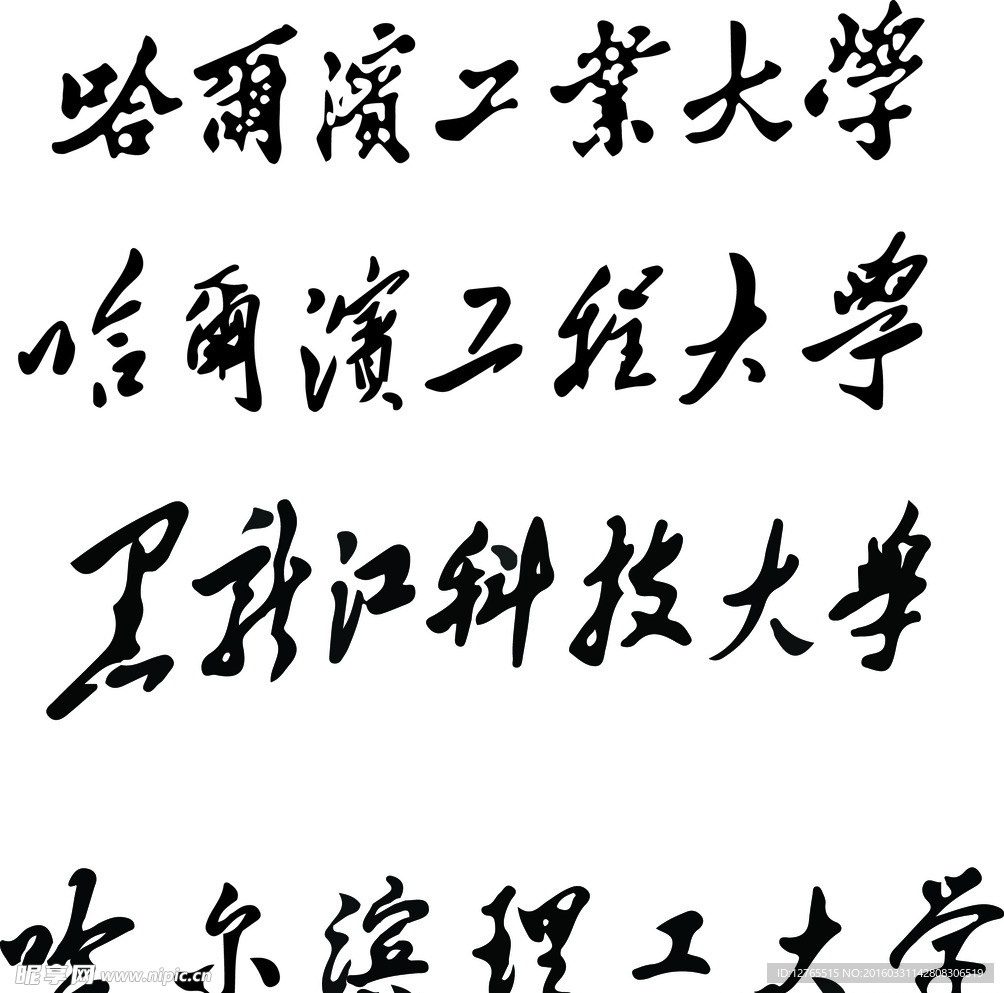 哈爾濱工業大學
哈爾濱工程大學
黑龙江科技大学
哈尔滨理工大学
昵享网 www.nipic.cn
ID:12765515 NO:20160331142808306519